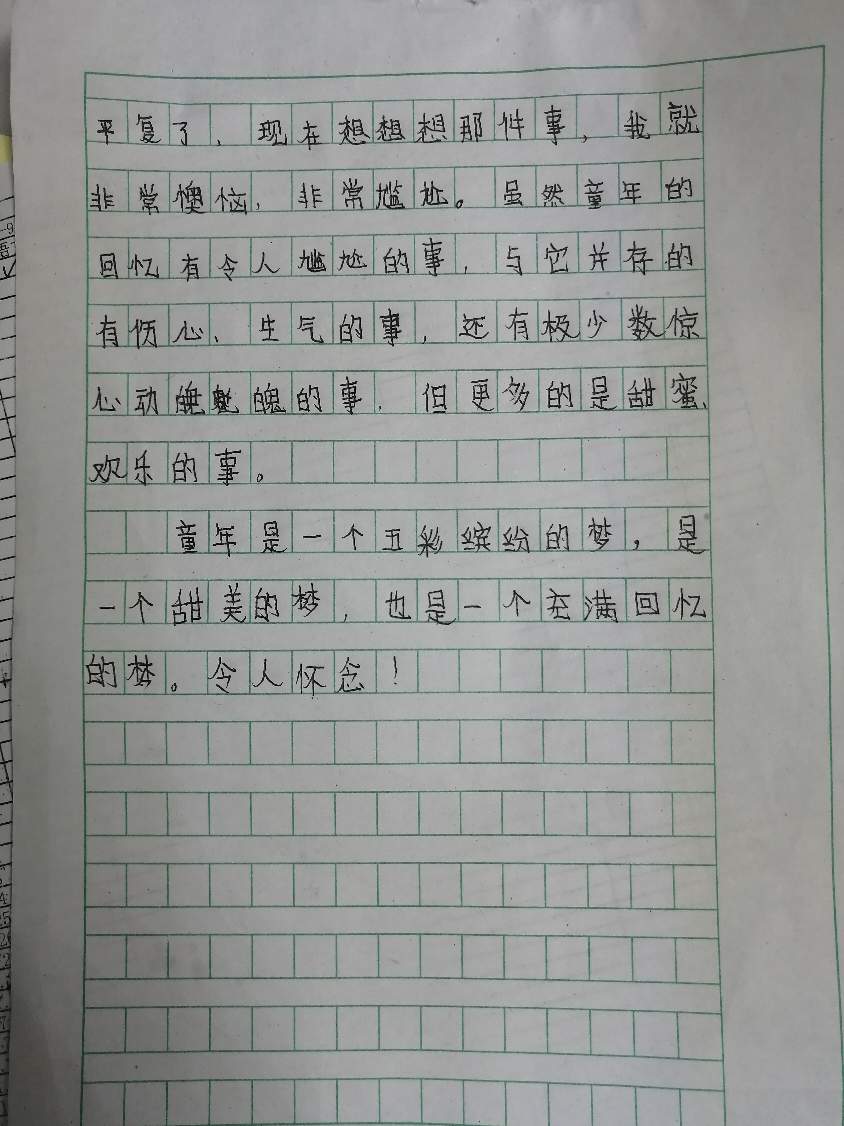 平复了，现在想想想那件事，我就
非常懊恼，非常尴尬。虽然童年的
回忆有令人尴尬的事，与它并存的
有伤心、生气的事，还有极少数惊
心动魄的事，但更多的是甜蜜、
欢乐的事。
童年是一个五彩缤纷的梦，是
一个甜美的梦，也是一个充满回忆
的梦。令人怀念！